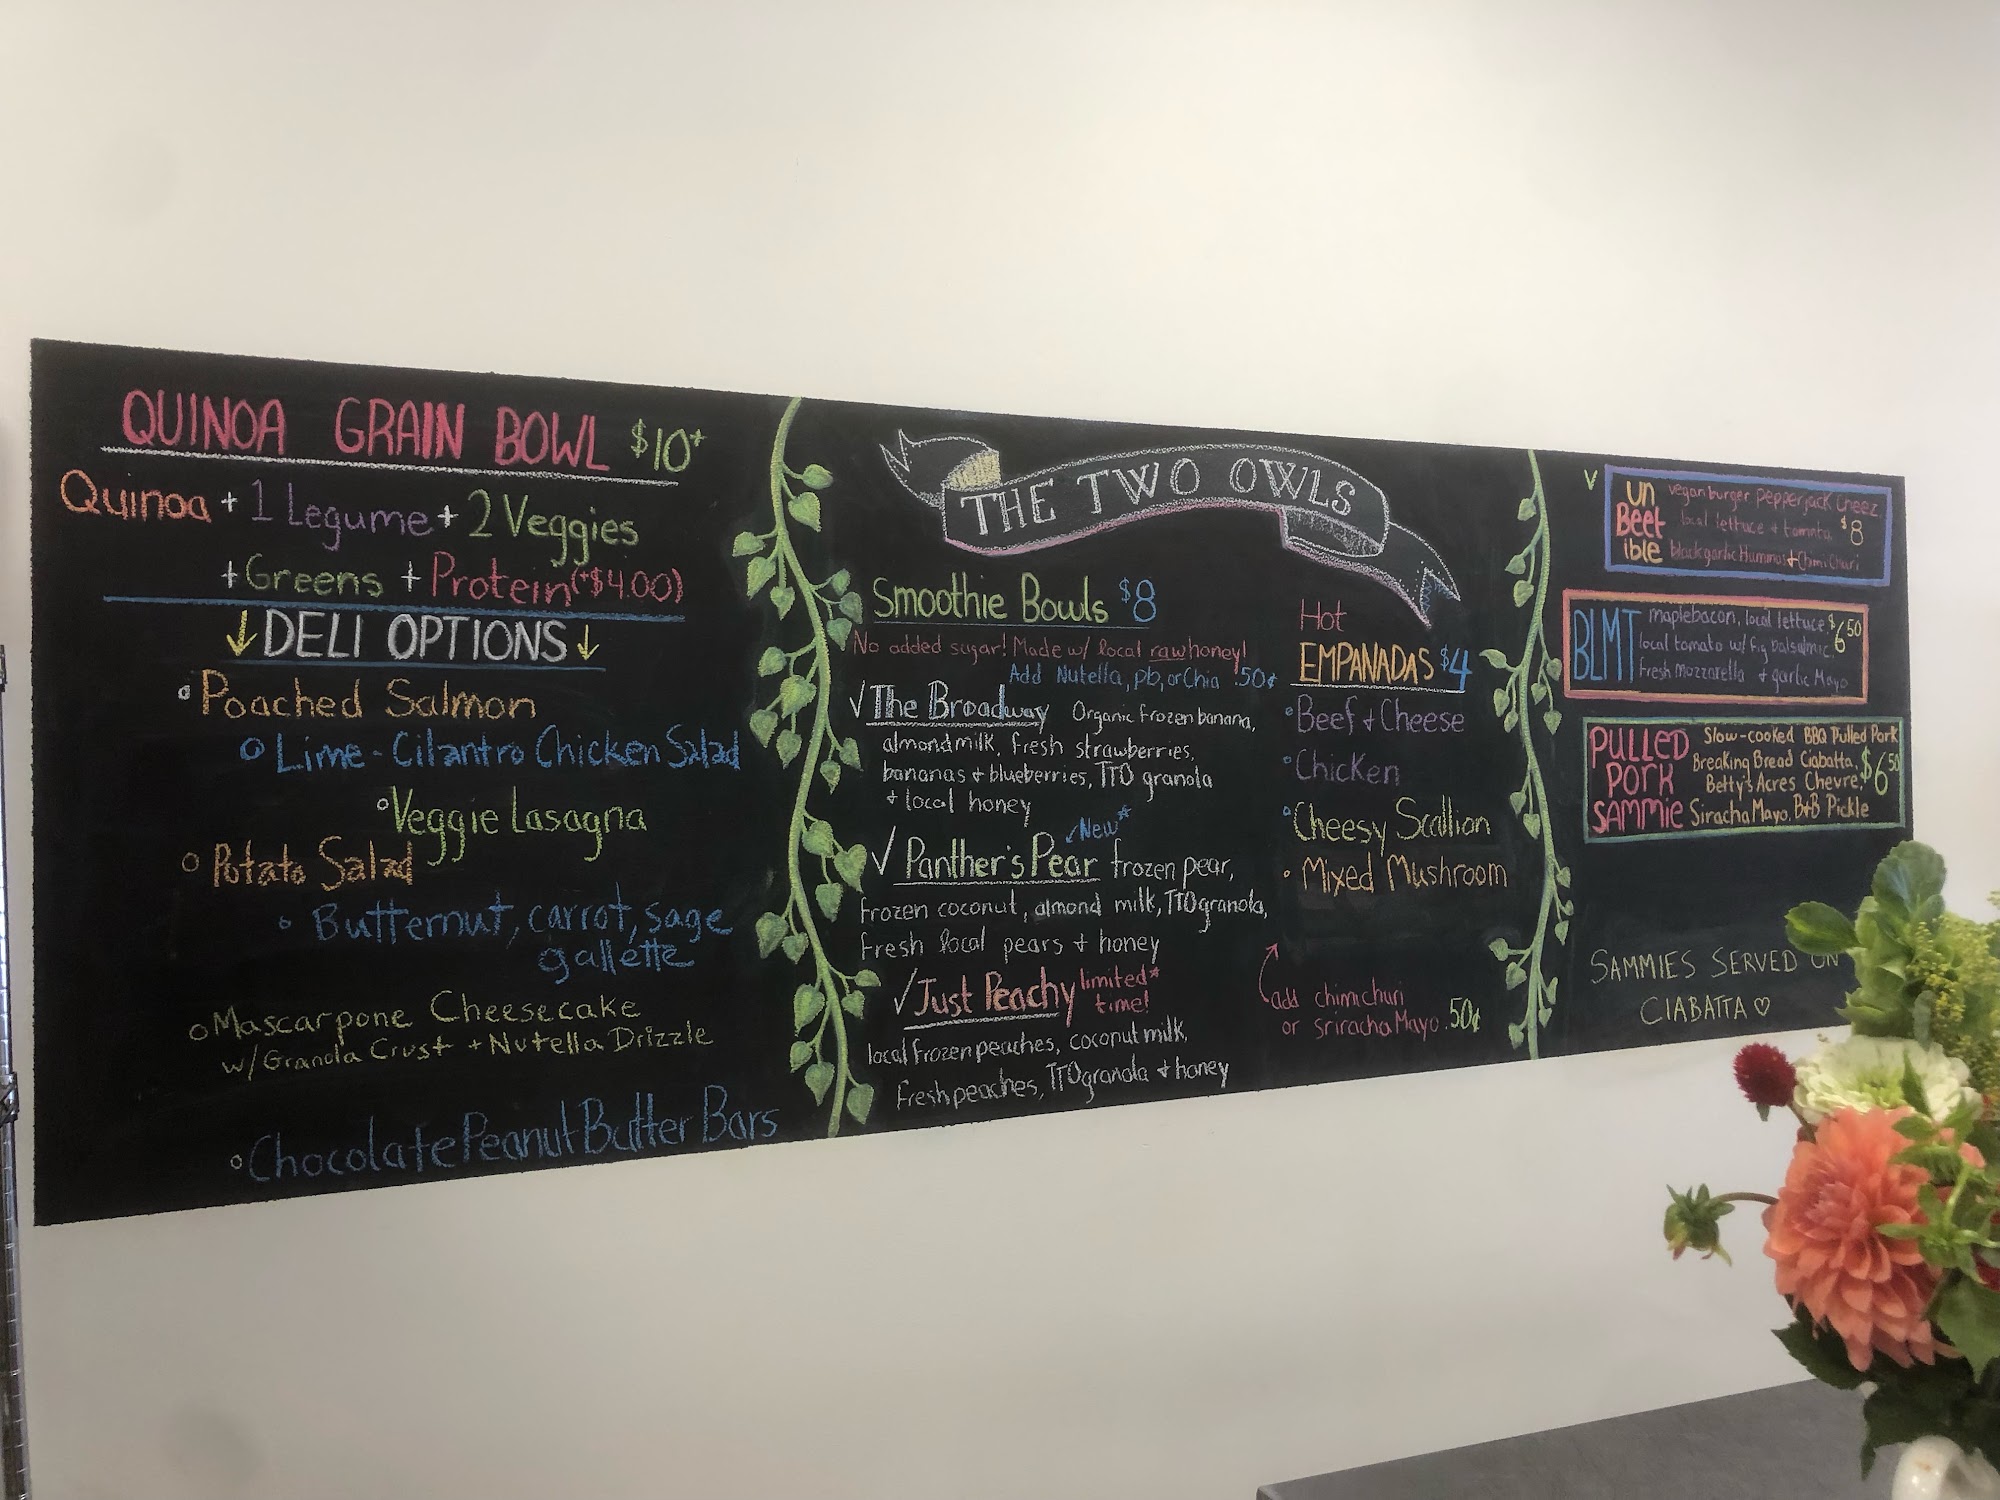 QUINOA GRAIN BOWL $10+
Quinoa + 1 Legume + 2 Veggies
+ Greens + Protein (+$4.00)
↓ DELI OPTIONS ↓
Poached Salmon
Lime-Cilantro Chicken Salad
Veggie Lasagna
Potato Salad
Butternut, carrot, sage
gallette
Mascarpone Cheesecake
w/ Granola Crust + Nutella Drizzle
Chocolate Peanut Butter Bars
THE TWO OWLS
Smoothie Bowls $8
No added sugar! Made w/ local raw honey!
Add Nutella, pb, or Chia .50¢
√ The Broadway Organic frozen banana,
almond milk, fresh strawberries,
bananas + blueberries, TTO granola
+ local honey
New*
√ Panther's Pear frozen pear,
frozen coconut, almond milk, TTO granola,
fresh local pears + honey
√ Just Peachy limited* time!
local frozen peaches, coconut milk,
fresh peaches, TTO granola + honey
Hot
EMPANADAS $4
Beef + Cheese
Chicken
Cheesy Scallion
Mixed Mushroom
add chimichuri
or sriracha Mayo .50¢
V
UN Beet ible
vegan burger pepperjack cheez
local lettuce + tomato, $8
black garlic Hummos + Chimi Churi
BLMT
maple bacon, local lettuce, $6.50
local tomato w/ fig balsalmic,
fresh mozzarella + garlic Mayo
PULLED PORK SAMMIE
Slow-cooked BBQ Pulled Pork
Breaking Bread Ciabatta, $6.50
Betty's Acres Chevre,
Siracha Mayo, B+B Pickle
SAMMIES SERVED ON
CIABATTA ♡